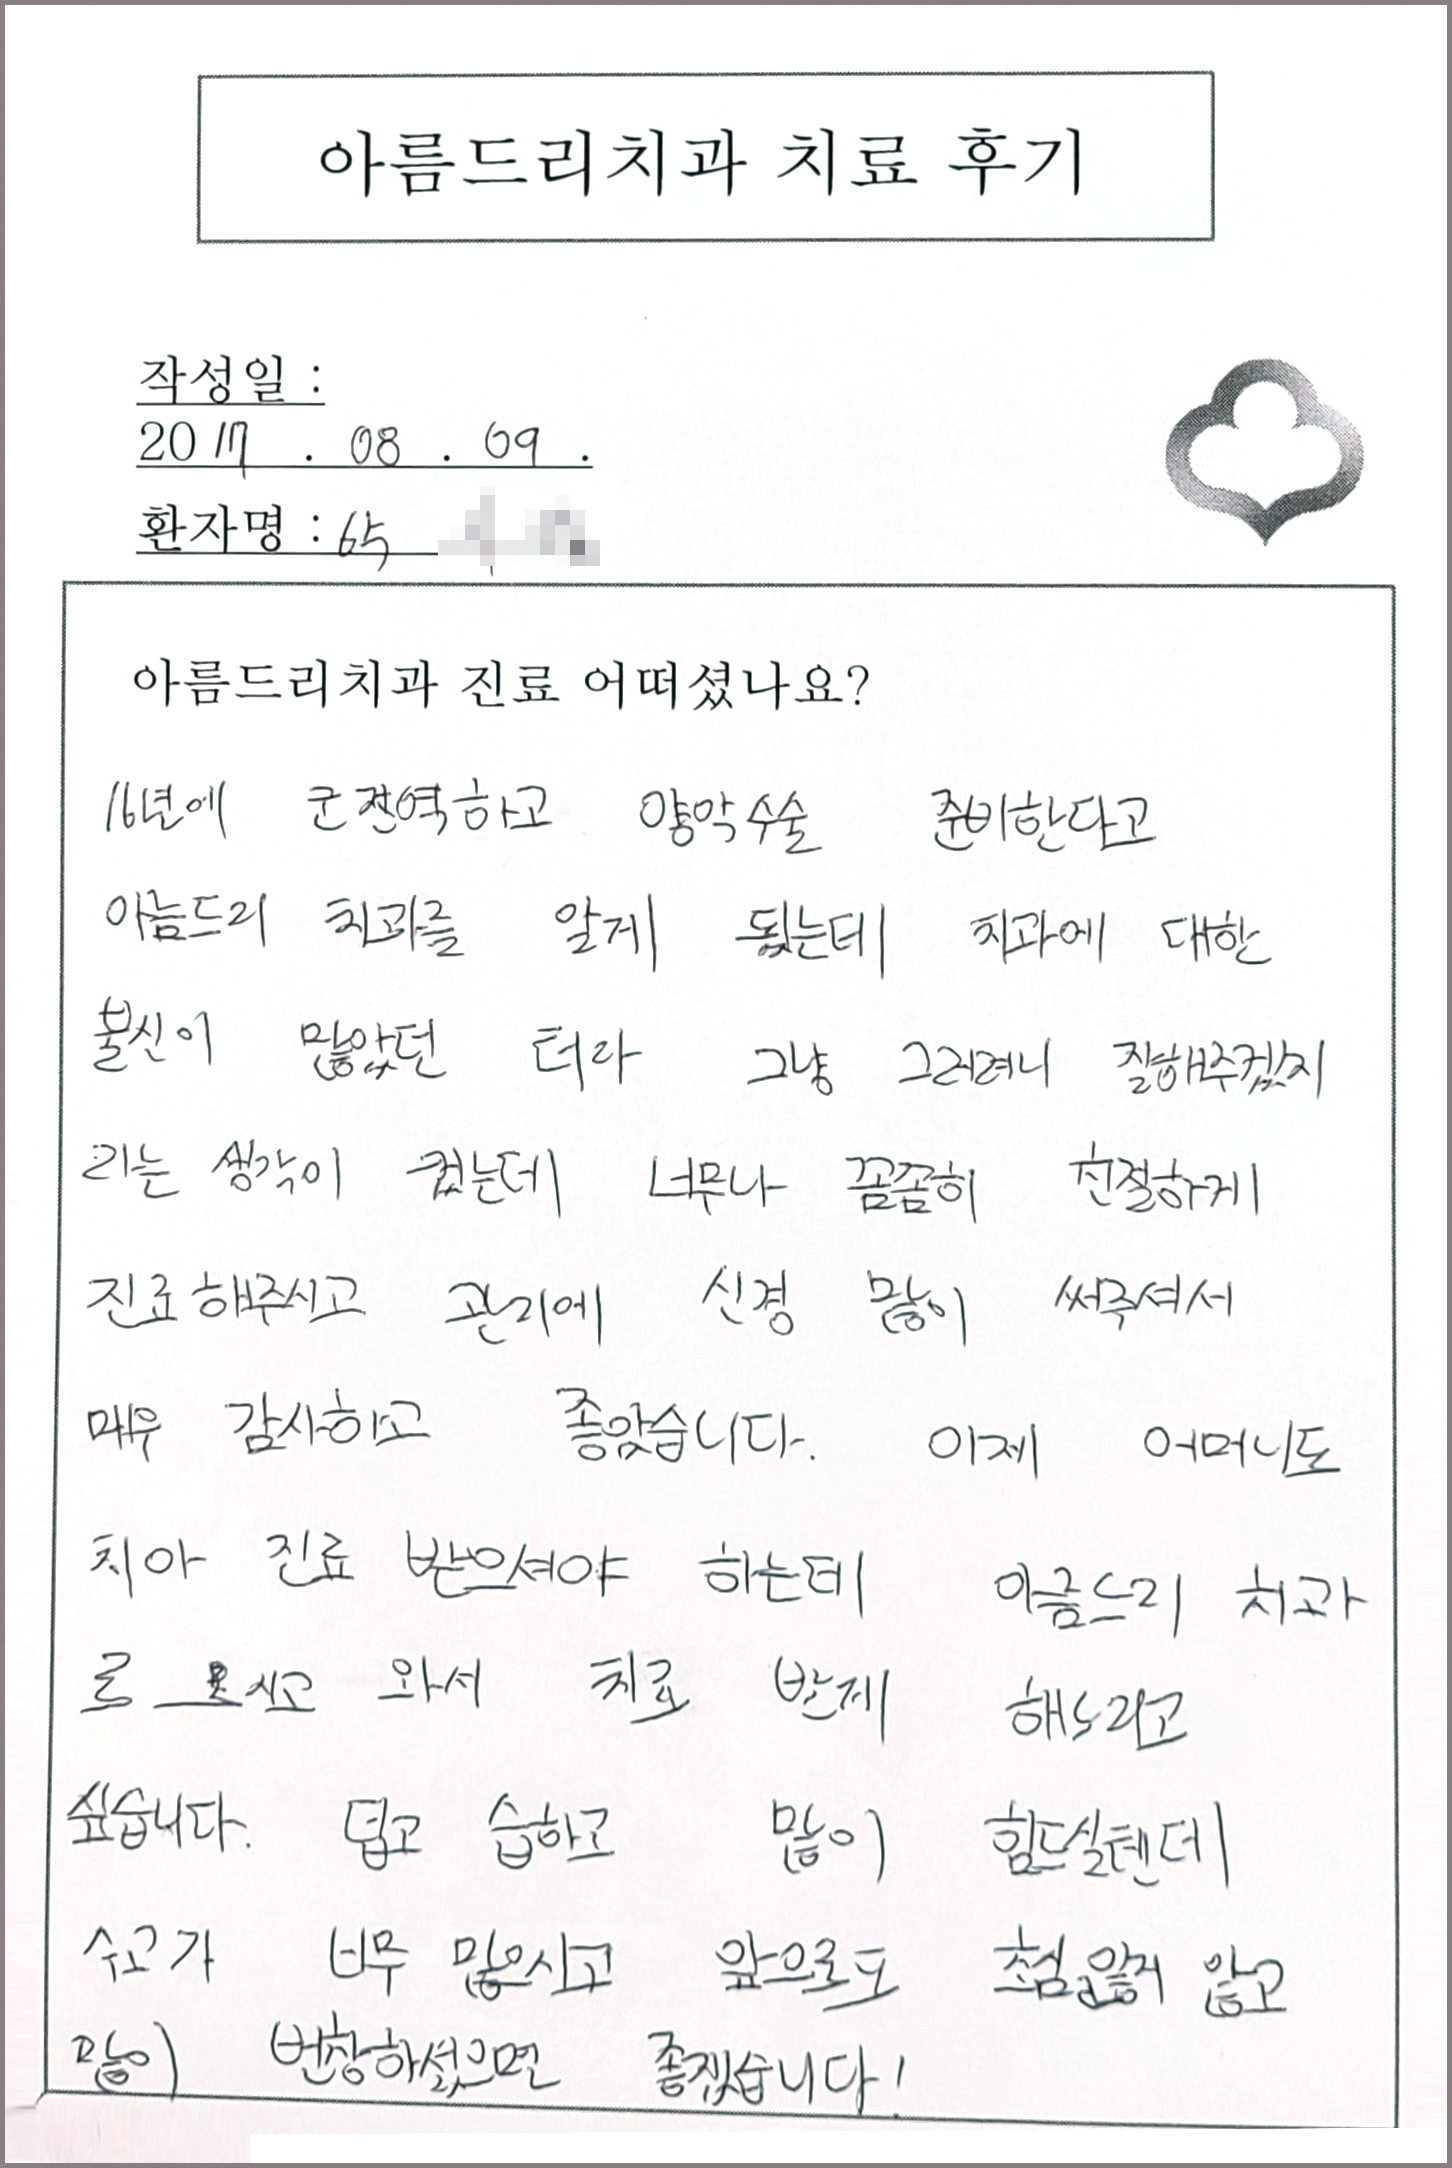 아름드리치과 치료 후기
작성일 :
2017 . 08 . 09 .
환자명 : 65
아름드리치과 진료 어떠셨나요?
16년에 군전역하고 양악수술 준비한다고
아늠드리 치과를 알게 됬는데 치과에 대한
불신이 많았던 터라 그냥 그러려니 잘해주겠지
라는 생각이 컸는데 너무나 꼼꼼히 친절하게
진료해주시고 관리에 신경 많이 써주셔서
매우 감사하고 좋았습니다. 이제 어머니도
치아 진료 받으셔야 하는데 아름드리 치과
로 모시고 와서 치료 받게 해드리고
싶습니다. 덥고 습하고 많이 힘드실텐데
수고가 너무 많으시고 앞으로도 초심 잃지 않고
많이 번창하셨으면 좋겠습니다!